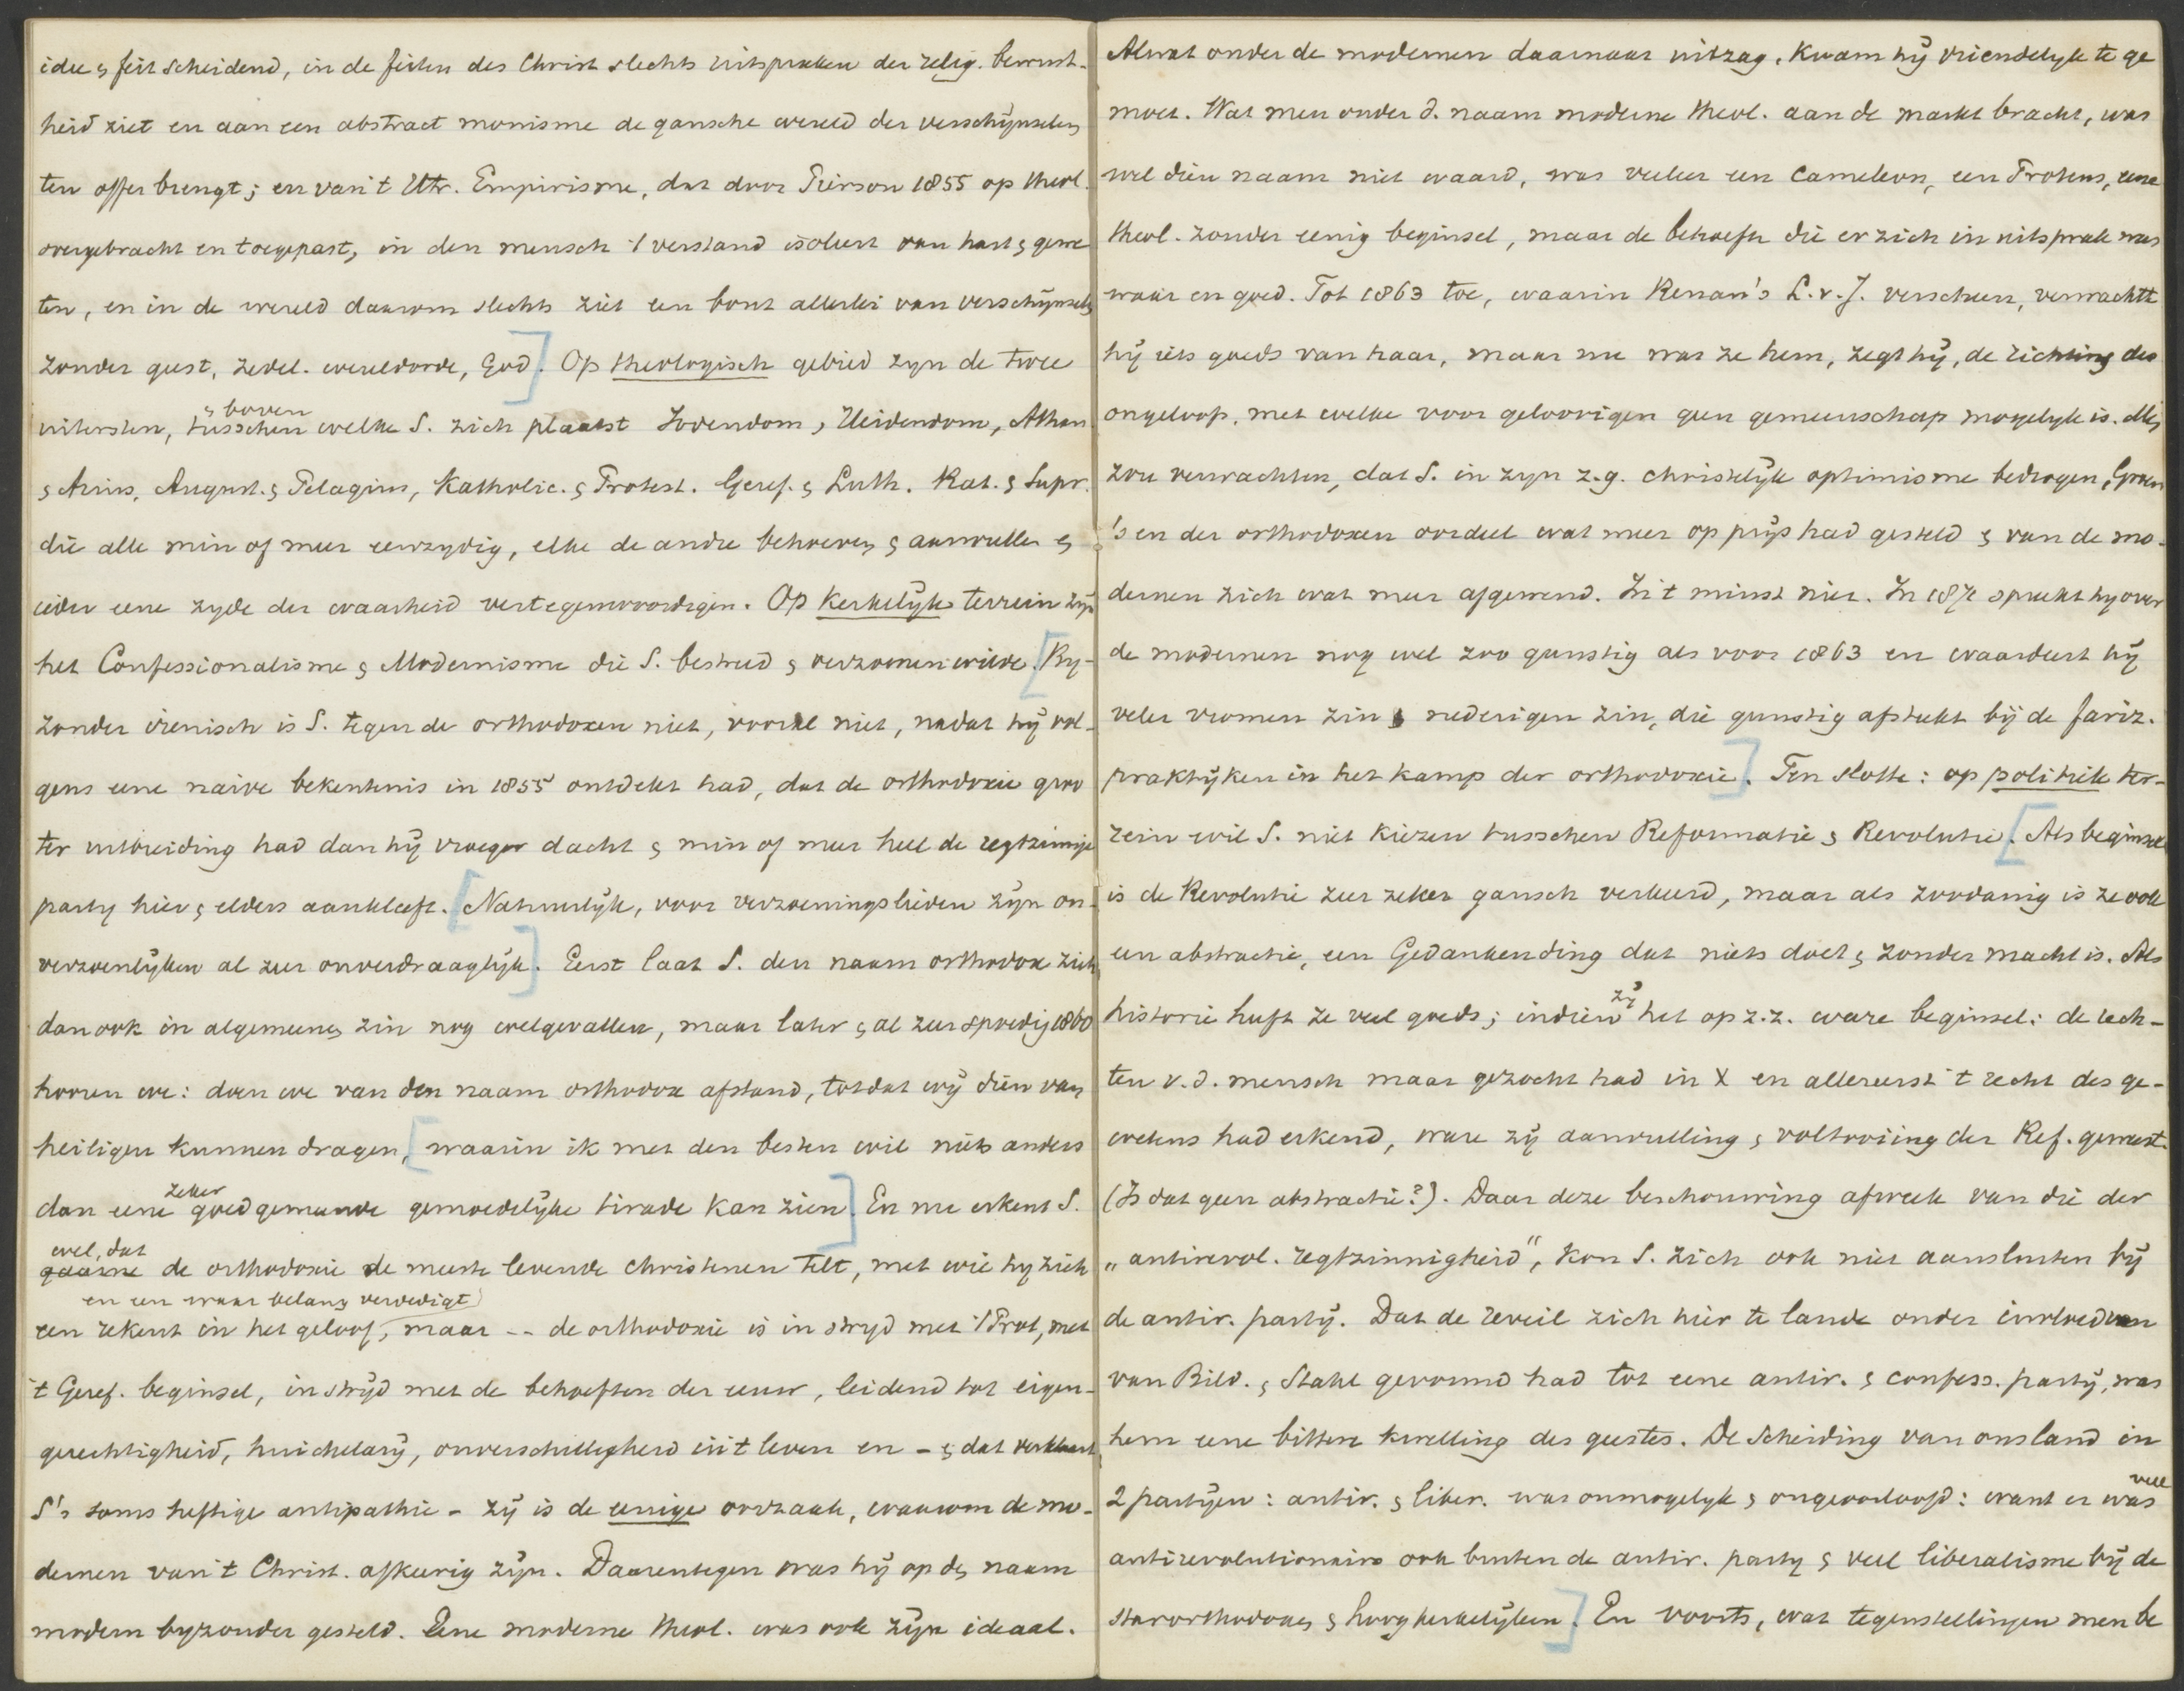 idee & feit scheidend, in de feiten des Christ slechts uitspraken der relig. bewust-
heid ziet en aan een abstract monisme de gansche wereld der verschijnselen
ten offer brengt; en van 't Utr. Empirisme, dat door Pierson 1855 op theol.
overgebracht en toegepast, in den mensch 't verstand isoleert van hart & gewe
ten, en in de wereld daarom slechts ziet een bont allerlei van verschijnsels
zonder geest, zedel. wereldorde, God]. Op theologisch gebied zyn de twee
uitersten, tusschen & boven welke S. zich plaatst Jodendom & Heidendom, Athan.
& Arius, August. & Pelagius, Katholic. & Protest. Geref. & Luth. Rat. & Supr.
die alle min of meer eenzydig, elke de andre behoeven & aanvullen &
ieder eene zyde der waarheid vertegenwoordigen. Op Kerkelijk terrein zijn
het Confessionalisme & Modernisme die S. bestreed & verzoenen wilde. [By-
zonder irenisch is S. tegen de orthodoxen niet, vooral niet, nadat hij vol-
gens eene naive bekentenis in 1855 ontdekt had, dat de orthodoxie groo
ter uitbreiding had dan hij vroeger dacht & min of meer heel de regtzinnige
party hier & elders aankleeft. [Natuurlijk, voor verzoeningslieden zijn on-
verzoenlijken al zeer onverdraaglijk]. Eerst laat S. den naam orthodox zich
dan ook in algemeenen zin nog welgevallen, maar later & al zeer spoedig 1860
hooren we: doen we van den naam orthodox afstand, totdat wij dien van
heiligen kunnen dragen, [waarin ik met den besten wil niets anders
dan eene zeker goedgemeende gemoedelijke tirade kan zien] En nu erkent S.
gaarne wel, dat de orthodoxie de meeste levende christenen telt, met wie hy zich
een rekent in het geloof, en een waar belang verdedigt, maar -- de orthodoxie is in stryd met 't Prot, met
't Geref. beginsel, in strijd met de behoeften der eeuw, leidend tot eigen-
gerechtigheid, huichelarij, onverschilligheid in 't leven en - & dat verklaart
S's soms heftige antipathie - zij is de eenige oorzaak, waarom de mo-
dernen van 't Christ. afkeerig zijn. Daarentegen was hij op den naam
modern byzonder gesteld. Eene moderne theol. was ook zijn ideaal.
Alwat onder de modernen daarnaar uitzag, kwam hij vriendelyk te ge
moet. Wat men onder d. naam moderne theol. aan de markt bracht, was
wel dien naam niet waard, was veeleer een Cameleon, een Proteus, eene
theol. zonder eenig beginsel, maar de behoefte die er zich in uitsprak was
waar en goed. Tot 1863 toe, waarin Renan's L.v.J. verscheen, verwachtte
hij iets goeds van haar, maar nu was ze hem, zegt hij, de richting des
ongeloofs, met welke voor geloovigen geen gemeenschap mogelyk is. Men
zou verwachten, dat S. in zyn z.g. christelijk optimisme bedrogen, Groen
's en der orthodoxen oordeel wat meer op prijs had gesteld & van de mo-
dernen zich wat meer afgewend. In 't minst niet. In 1872 spreekt hy over
de modernen nog wel zoo gunstig als voor 1863 en waardeert hij
veler vromen zin & nederigen zin, die gunstig afsteekt bij de fariz.
praktijken in het kamp der orthodoxie]. Ten slotte: op politiek ter-
rein wil S. niet kiezen tusschen Reformatie & Revolutie. [Als beginsel
is de Revolutie zeer zeker gansch verkeerd, maar als zoodanig is ze ook
een abstractie, een Gedankending dat niets doet & zonder macht is. Als
historie heeft ze veel goeds; indien zij het op z.z. ware beginsel: de rech-
ten v.d. mensch maar gezocht had in X en allereerst 't recht des ge-
wetens had erkend, ware zij aanvulling & voltooiing der Ref. geweest.
(Is dat geen abstractie?). Daar deze beschouwing afweek van die der
„antirevol. regtzinnigheid", kon S. zich ook niet aansluiten bij
de antir. partij. Dat de reveil zich hier te lande onder invloed van
van Bild. & Stahl gevormd had tot eene antir. & confess. partij, was
hem eene bittere kwelling des geestes. De scheiding van ons land in
2 partijen: antir. & liber. was onmogelyk & ongeoorloofd: want er was veel
antirevolutionairs ook buiten de antir. party & veel liberalisme bij de
starorthodoxen & hoogkerkelijken]. En voorts, wat tegenstellingen men be